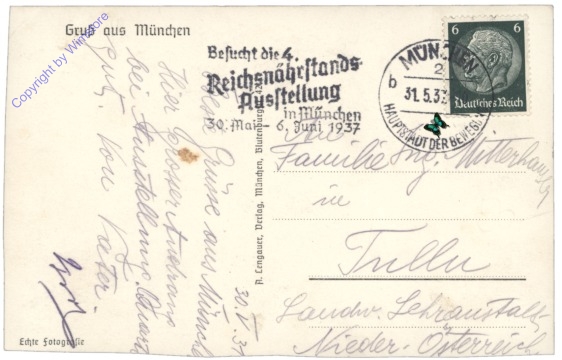 Gruß aus München
Copyright by Winstore
Besucht die 4.
Reichsnährstands-
Ausstellung
in München
30. Mai – 6. Juni 1937
MÜNCHEN
2
b
31.5.37
HAUPTSTADT DER BEWEGUNG
6 6
Deutsches Reich
Grüße aus München
Hier
bei Ausstellung
gut. Von Vater.
30. V. 37
A. Lengauer, Verlag, München, Blutenburgstr. 42
Familie Ing. Mitterhauser
in
Tulln
Landw. Lehranstalt
Nieder-Österreich
Echte Fotografie